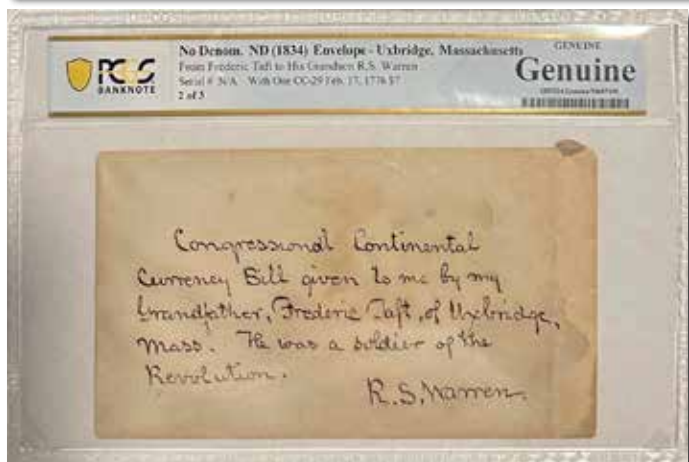 PCGS
BANKNOTE
No Denom. ND (1834) Envelope - Uxbridge, Massachusetts
From Frederic Taft to His Grandson R.S. Warren
Serial # N/A With One CC-29 Feb. 17, 1776 $?
2 of 3
GENUINE
Genuine
Congressional Continental
Currency Bill given to me by my
Grandfather, Frederic Taft, of Uxbridge,
Mass. He was a soldier of the
Revolution.
R.S. Warren.